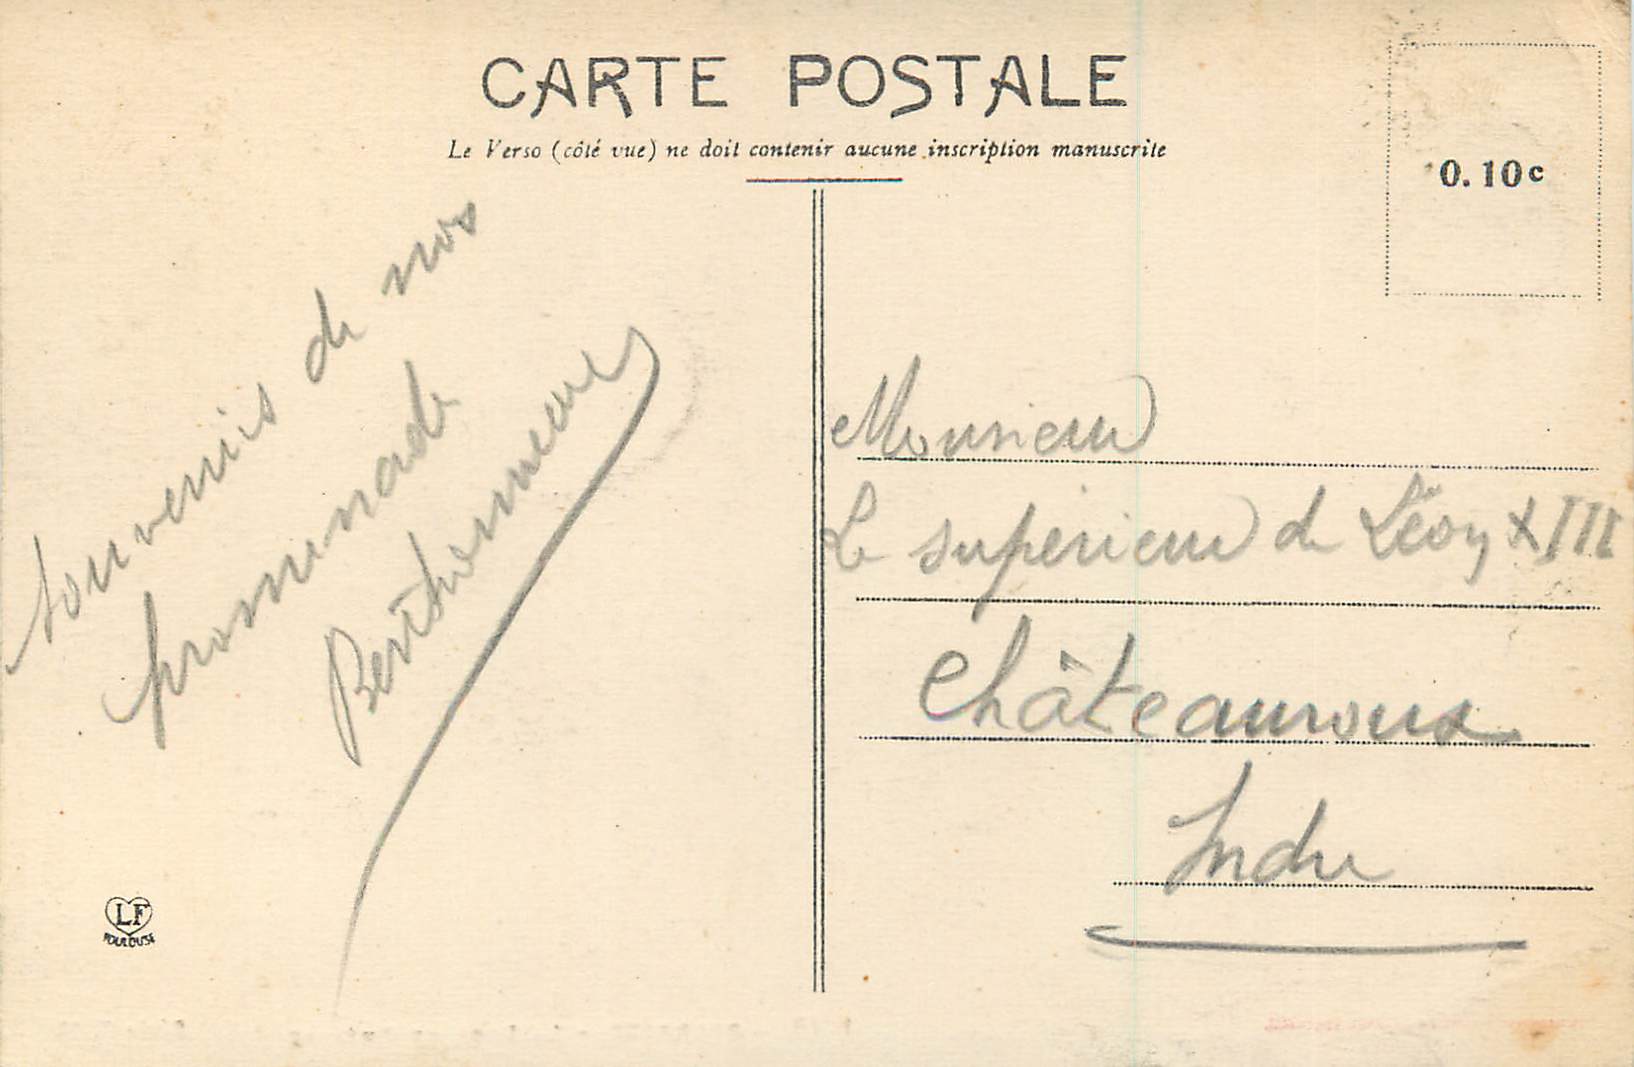 CARTE POSTALE
Le Verso (côté vue) ne doit contenir aucune inscription manuscrite
0.10c
souvenirs de nos
promenade
Berthomeaux
Monsieur
Le supérieur de Léon XIII
Châteauroux
Indre
LF
TOULOUSE